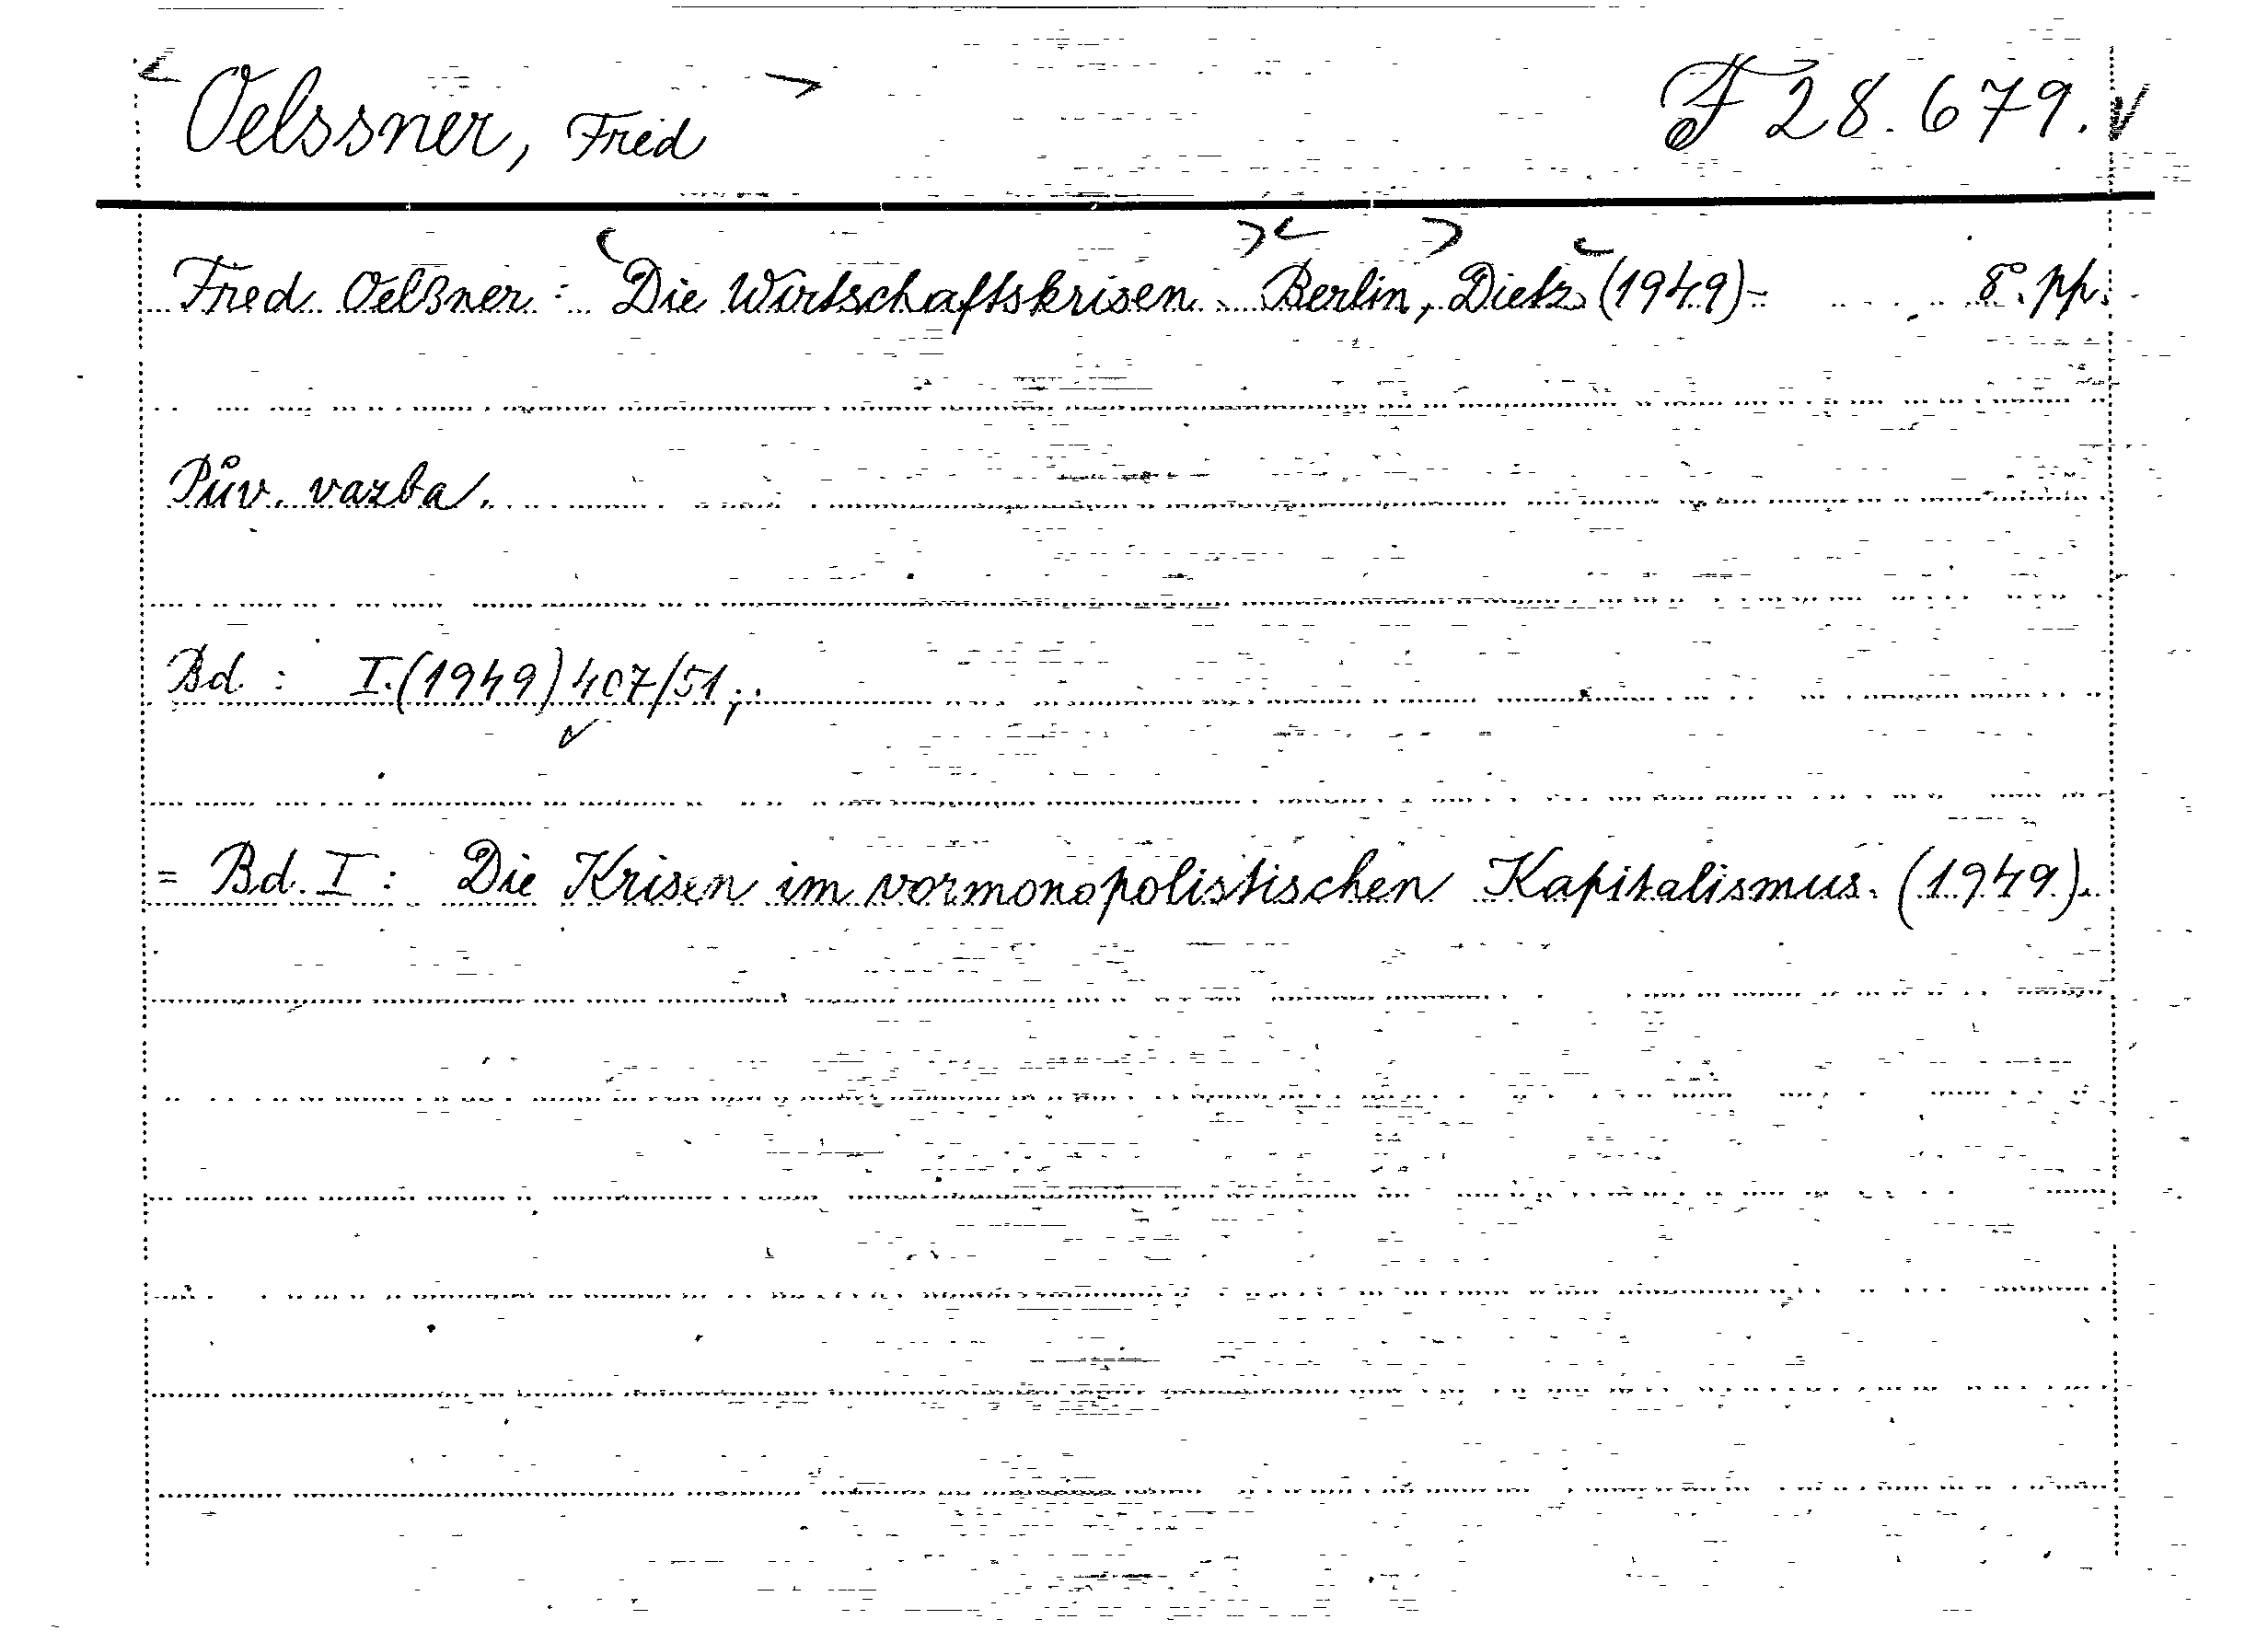 Oelssner, Fred F 28.679.
Fred Oelßner: Die Wirtschaftskrisen. Berlin, Dietz (1949)- 8°. pp.
Pův. vazba.
Bd.: I.(1949) 407/51;
= Bd. I: Die Krisen im vormonopolistischen Kapitalismus. (1949).